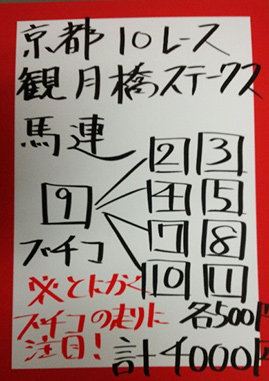 京都10レース
観月橋ステークス
馬連
2 3
4 5
9
7 8
10 11
ブチコ
各500円
※とにかく
ブチコの走りに
注目!
計4000円